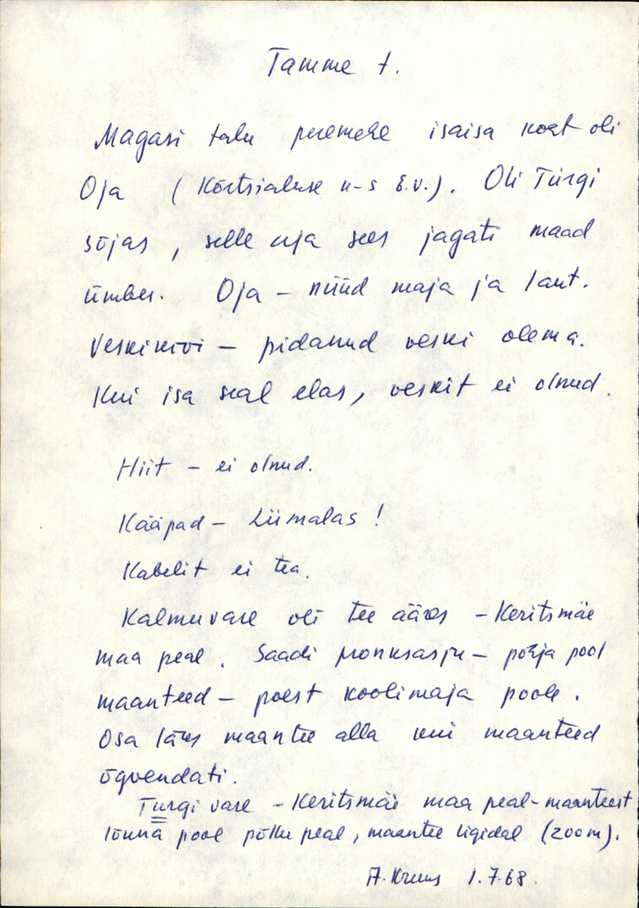 Tamme t.
Magasi talu peremehe isaisa koht oli
Oja (Kõrtsialuse n-s E.V.). Oli Türgi
sõjas, selle aja sees jagati maad
ümber. Oja – nüüd maja ja laut.
Veskikivi – pidanud veski olema.
Kui isa seal elas, veskit ei olnud.
Hiit – ei olnud.
Kääpad – Liimalas!
Kabelit ei tea.
Kalmuvare oli tee ääres – Keritsmäe
maa peal. Saadi pronksasju – põhja pool
maanteed – poest koolimaja poole.
Osa läks maantee alla kui maanteed
õgvendati.
Turgi vare – Keritsmäe maa peal – maanteest
lõuna pool põllu peal, maantee ligidal (200m).
A. Kruus 1.7.68.